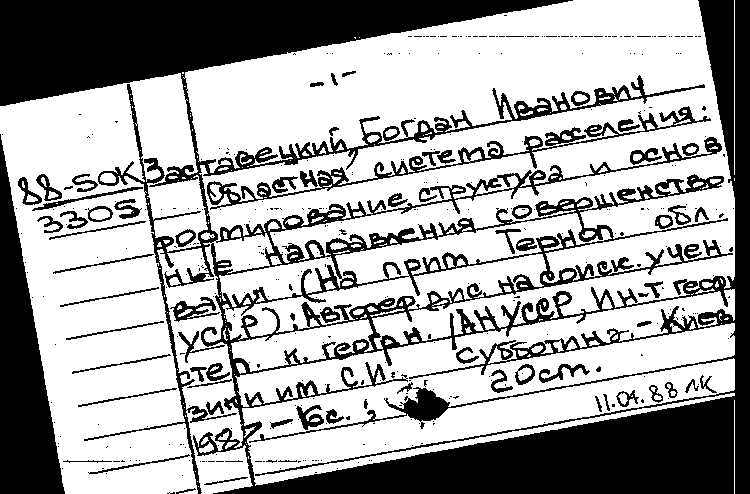 -1-
Заставецкий, Богдан Иванович
88-5ОК
3305
Областная система расселения:
формирование, структура и основ
ные направления совершенство
вания : (На прим. Терноп. обл.
УССР) : Автореф. дис. на соиск. учен.
степ. к. геогр н. / АН УССР, Ин-т геофи
зики им. С.И. Субботина. - Киев,
1987. - 16с. ; 20см.
11.01.88 ЛК